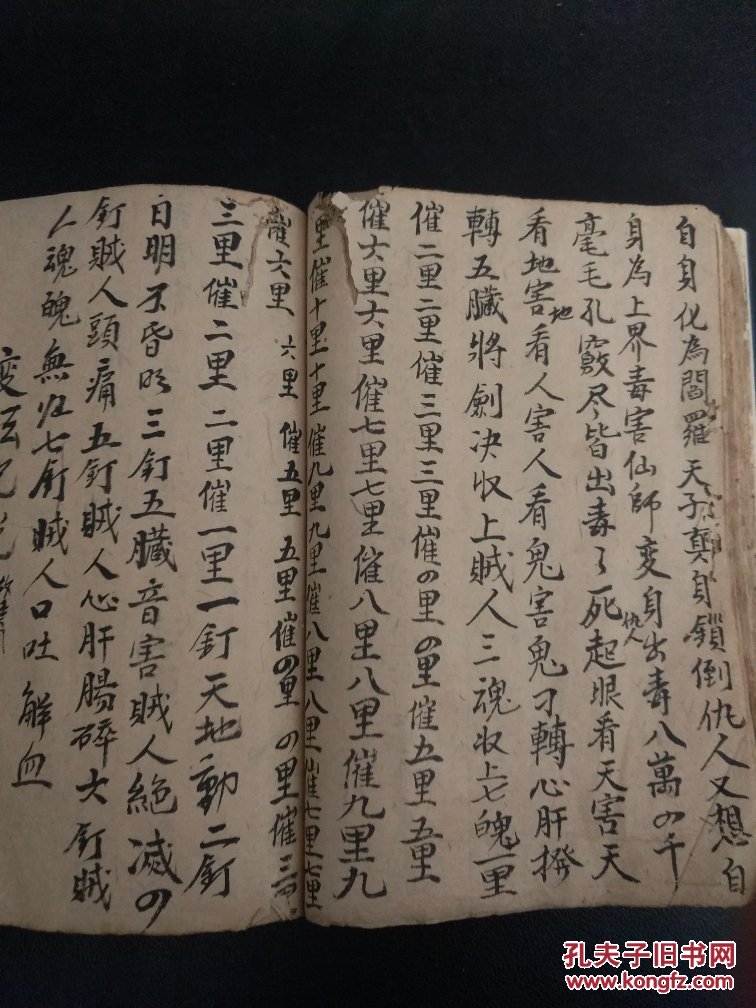 自身化為閻羅天子龔身鎖倒仇人又想自
身為上界毒害仙師変身出毒八萬四千
仇人
毫毛孔竅尽皆出毒了死起眼看天害天
看地害地看人害人看鬼害鬼刁轉心肝撥
轉五臟將劍决收上賊人三魂收上七魄一里
催二里二里催三里三里催四里四里催五里五里
催六里六里催七里七里催八里八里催九里九
里催十里十里催九里九里催八里八里催七里七里
催六里六里催五里五里催四里四里催三
三里催二里二里催一里一釘天地動二釘
日明不昏昭三釘五臟音害賊人絶滅四
釘賊人頭痛五釘賊人心肝腸碎六釘賊
人魂魄無归七釘賊人口吐鮮血
孔夫子旧书网
www.kongfz.com